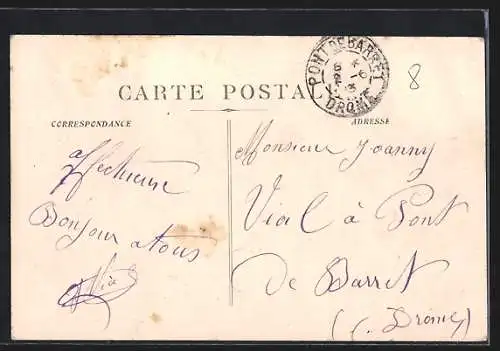 CARTE POSTALE
PONT DE BARRET
DROME
8
CORRESPONDANCE
ADRESSE
Affectueux
Bonjour a tous
Vial
Monsieur Joanny
Vial à Pont
De Barret
(Drome)